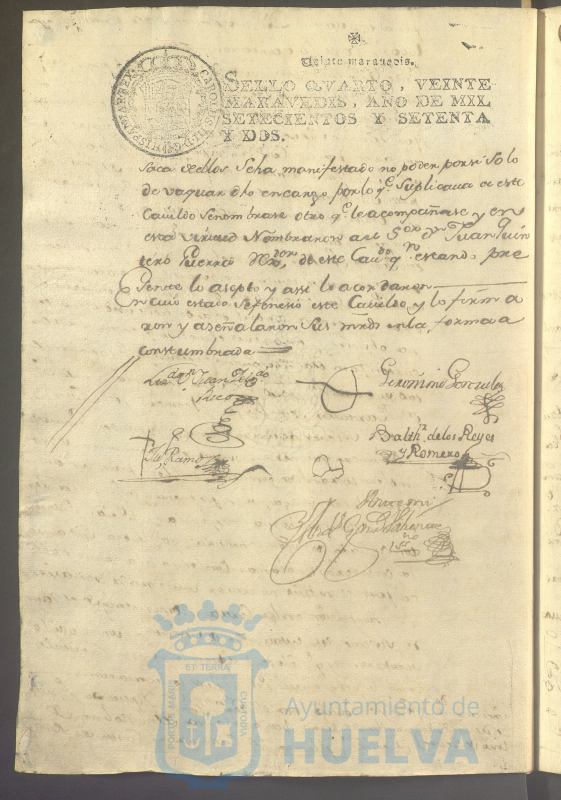 Veinte maravedis.
SELLO QVARTO, VEINTE
MARAVEDIS, AÑO DE MIL
SETECIENTOS Y SETENTA
Y DOS.
saca de ellos se ha manifestado no poder por si solo
de vaquar dho encargo por lo q.e suplicava a este
Cavildo se nombrase otro q.e le acompañase y en
esta virtud Nombraron al S.or d.n Juan Quin
tero Guerrero de este Cav.do q.n estando pre
sente lo acepto y assi lo acordaron
En cuio estado se fenesio este Cavildo y lo firma
ron y a señalaron sus mrds en la forma a
constumbrada
Lic.do Juan
Rico
Geronimo Gonzales
Balth.r de los Reyes
y Romero
Ramos
Ante mi
ET TERRÆ
PORTUS MARIS
CUSTODIA
Ayuntamiento de
HUELVA